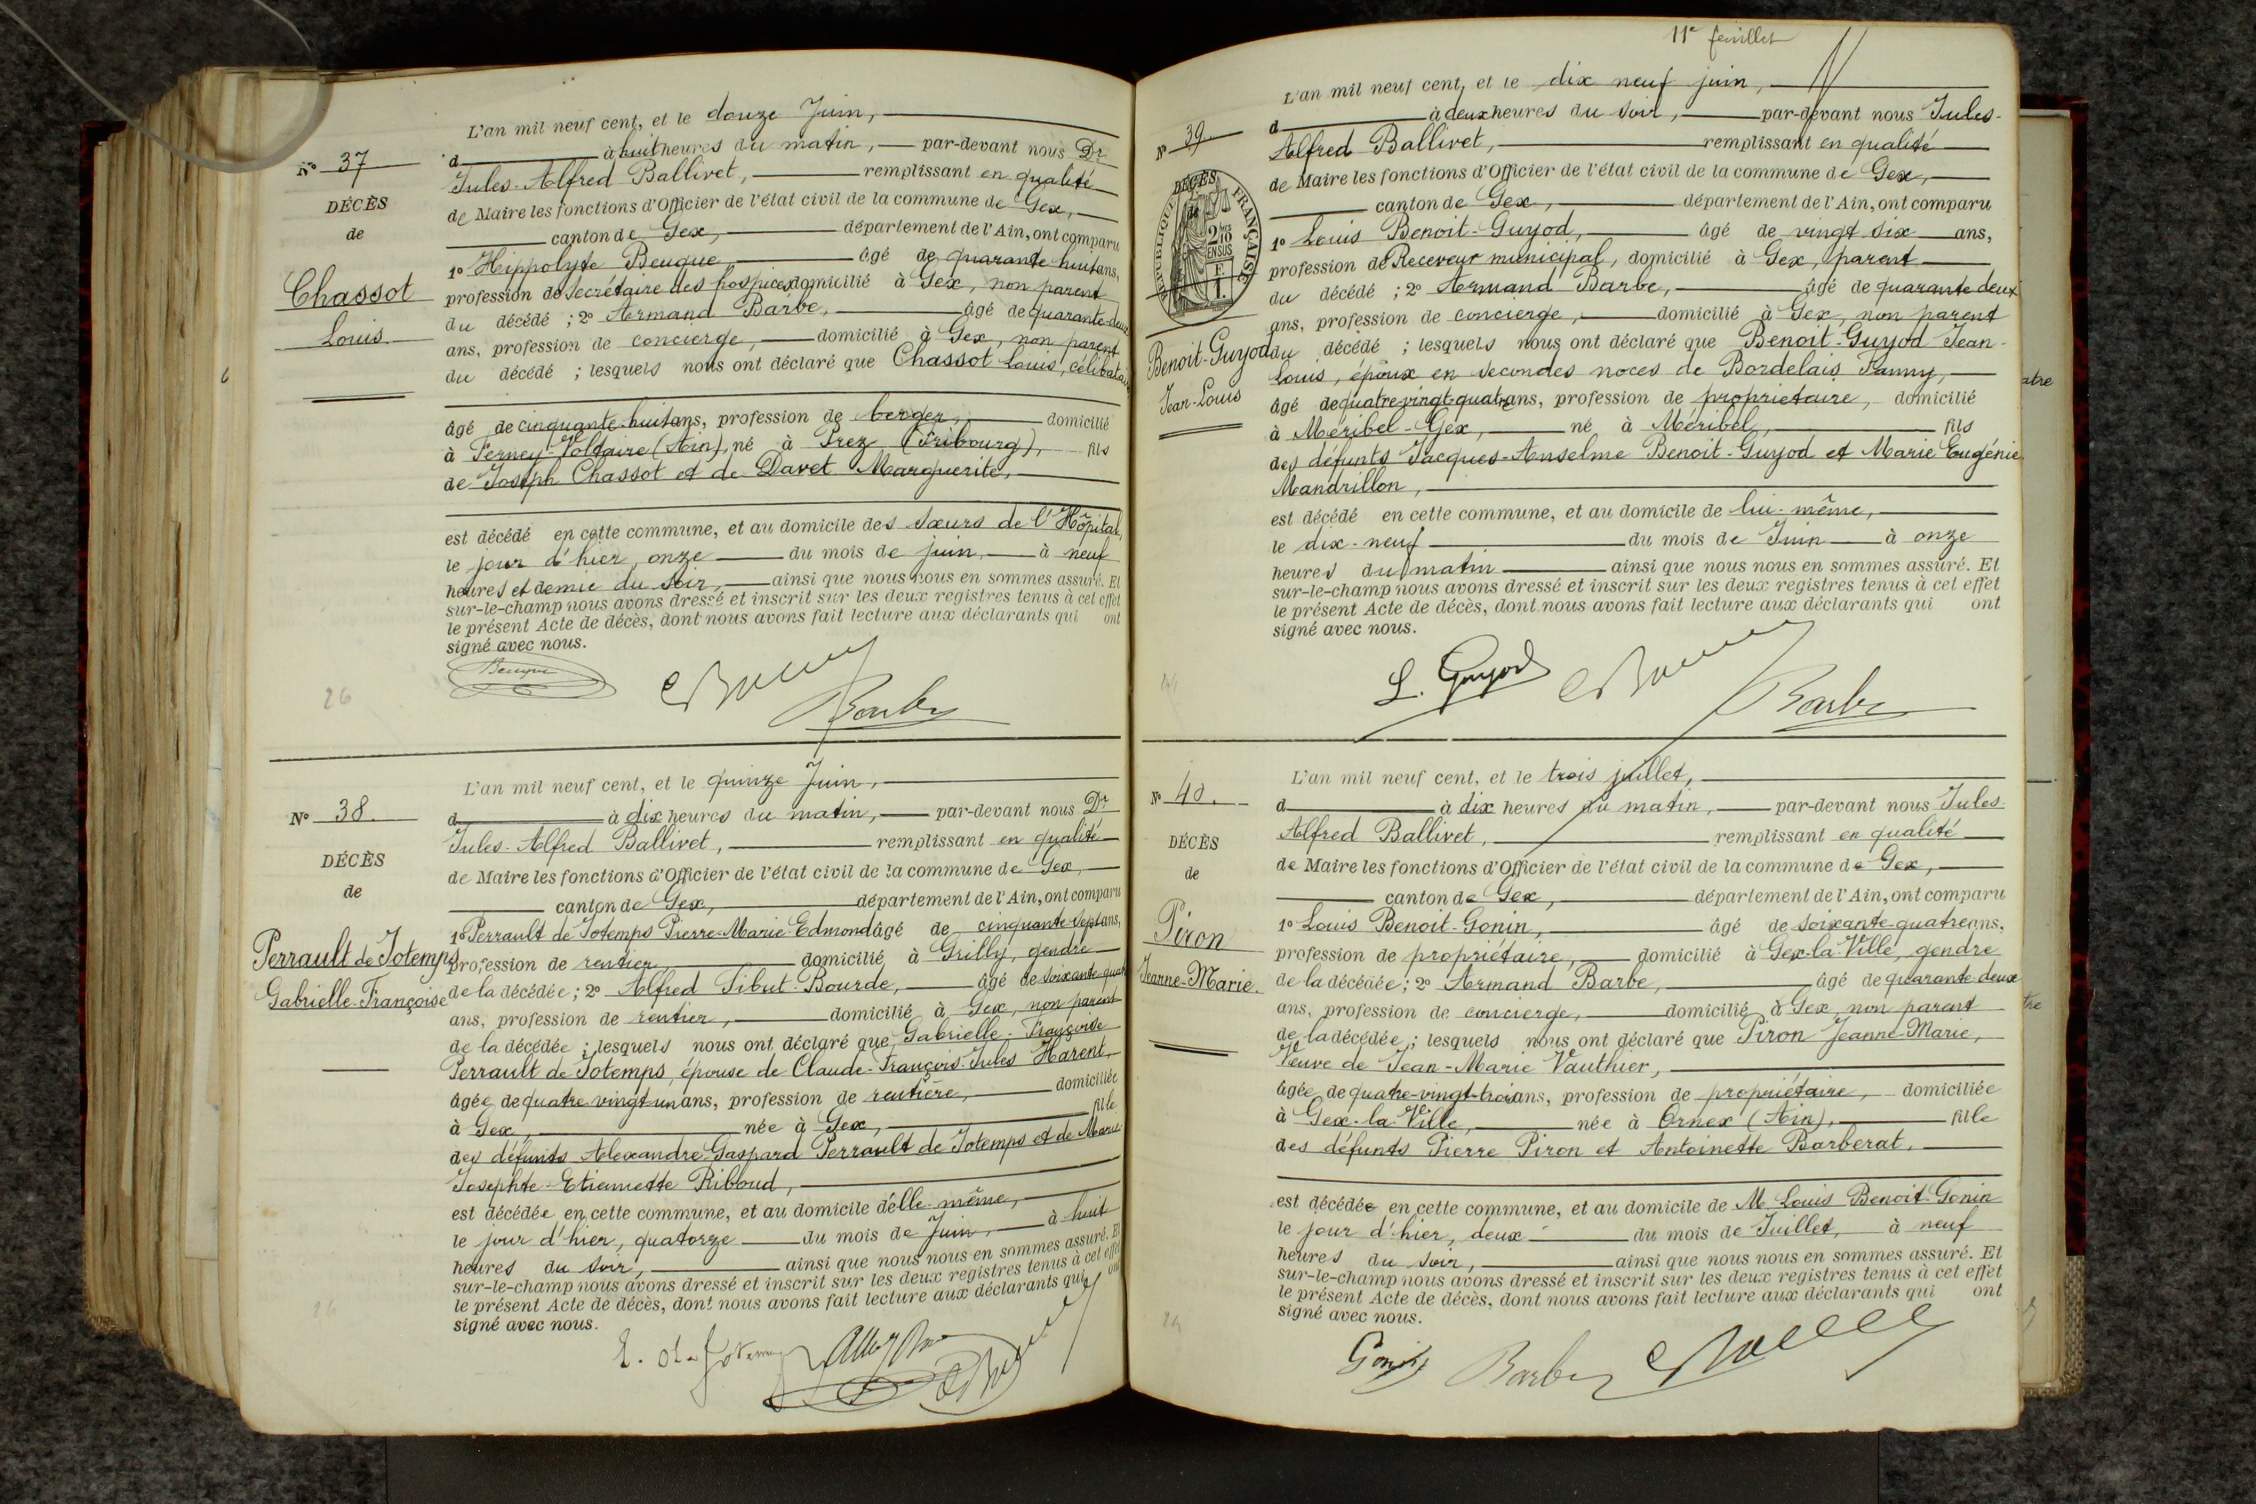 L'an mil neuf cent, et le douze Juin,
N° 37
d à huit heures du matin, par-devant nous Dr
Jules-Alfred Ballivet, remplissant en qualité
DÉCÈS
de Maire les fonctions d'Officier de l'état civil de la commune de Gex,
de
canton de Gex, département de l'Ain, ont comparu
1° Hippolyte Beuque, âgé de quarante huit ans,
Chassot
profession de Secrétaire des hospices, domicilié à Gex, non parent
du décédé ; 2° Armand Barbe, âgé de quarante-deux
Louis
ans, profession de concierge, domicilié à Gex, non parent
du décédé ; lesquels nous ont déclaré que Chassot Louis, célibataire
âgé de cinquante-huit ans, profession de berger, domicilié
à Ferney-Voltaire (Ain), né à Prez (Fribourg), fils
de Joseph Chassot et de Davet Marguerite,
est décédé en cette commune, et au domicile des sœurs de l'Hôpital,
le jour d'hier, onze du mois de juin, à neuf
heures et demie du soir, ainsi que nous nous en sommes assuré. Et
sur-le-champ nous avons dressé et inscrit sur les deux registres tenus à cet effet
le présent Acte de décès, dont nous avons fait lecture aux déclarants qui ont
signé avec nous.
Beuque
Barbe
26
L'an mil neuf cent, et le quinze Juin,
N° 38.
d à dix heures du matin, par-devant nous Dr
Jules-Alfred Ballivet, remplissant en qualité
DÉCÈS
de Maire les fonctions d'Officier de l'état civil de la commune de Gex,
de
canton de Gex, département de l'Ain, ont comparu
1° Perrault de Jotemps Pierre-Marie-Edmond âgé de cinquante-sept ans,
Perrault de Jotemps
profession de rentier, domicilié à Grilly, gendre
Gabrielle-Françoise
de la décédée ; 2° Alfred Tibut-Bourde, âgé de soixante-quatre
ans, profession de rentier, domicilié à Gex, non parent
de la décédée ; lesquels nous ont déclaré que Gabrielle-Françoise
Perrault de Jotemps, épouse de Claude-François-Jules Harent,
âgée de quatre vingt-un ans, profession de rentière, domiciliée
à Gex, née à Gex, fille
des défunts Alexandre Gaspard Perrault de Jotemps et de Marie
Josephte-Etiennette Riboud,
est décédée en cette commune, et au domicile d'elle-même,
le jour d'hier, quatorze du mois de Juin, à huit
heures du soir, ainsi que nous nous en sommes assuré. Et
sur-le-champ nous avons dressé et inscrit sur les deux registres tenus à cet effet
le présent Acte de décès, dont nous avons fait lecture aux déclarants qui ont
signé avec nous.
11e feuillet
L'an mil neuf cent, et le dix neuf juin,
N° 39.
d à deux heures du soir, par-devant nous Jules-
Alfred Ballivet, remplissant en qualité
DÉCÈS
de
RÉPUBLIQUE FRANÇAISE
2/10 EN SUS
de Maire les fonctions d'Officier de l'état civil de la commune de Gex,
canton de Gex, département de l'Ain, ont comparu
1° Louis Benoit-Guyod, âgé de vingt six ans,
profession de Receveur municipal, domicilié à Gex, parent
du décédé ; 2° Armand Barbe, âgé de quarante deux
ans, profession de concierge, domicilié à Gex, non parent
Benoit-Guyod
du décédé ; lesquels nous ont déclaré que Benoit-Guyod Jean-
Jean-Louis
Louis, époux en secondes noces de Bordelais Fanny,
âgé de quatre vingt-quatre ans, profession de propriétaire, domicilié
à Méribel-Gex, né à Méribel, fils
des défunts Jacques-Anselme Benoit-Guyod et Marie Eugénie
Mandrillon,
est décédé en cette commune, et au domicile de lui-même,
le dix-neuf du mois de Juin à onze
heures du matin ainsi que nous nous en sommes assuré. Et
sur-le-champ nous avons dressé et inscrit sur les deux registres tenus à cet effet
le présent Acte de décès, dont nous avons fait lecture aux déclarants qui ont
signé avec nous.
L. Guyod
Barbe
L'an mil neuf cent, et le trois juillet,
N° 40.
d à dix heures du matin, par-devant nous Jules-
Alfred Ballivet, remplissant en qualité
DÉCÈS
de Maire les fonctions d'Officier de l'état civil de la commune de Gex,
de
canton de Gex, département de l'Ain, ont comparu
1° Louis Benoit-Gonin, âgé de soixante-quatre ans,
Piron
profession de propriétaire, domicilié à Gex-la-Ville, gendre
Jeanne-Marie.
de la décédée ; 2° Armand Barbe, âgé de quarante deux
ans, profession de concierge, domicilié à Gex, non parent
de la décédée ; lesquels nous ont déclaré que Piron Jeanne-Marie,
Veuve de Jean-Marie Vauthier,
âgée de quatre-vingt-trois ans, profession de propriétaire, domiciliée
à Gex-la-Ville, née à Ornex (Ain), fille
des défunts Pierre Piron et Antoinette Barberat,
est décédée en cette commune, et au domicile de M Louis Benoit-Gonin
le jour d'hier, deux du mois de Juillet, à neuf
heures du soir, ainsi que nous nous en sommes assuré. Et
sur-le-champ nous avons dressé et inscrit sur les deux registres tenus à cet effet
le présent Acte de décès, dont nous avons fait lecture aux déclarants qui ont
signé avec nous.
Gonin
Barbe